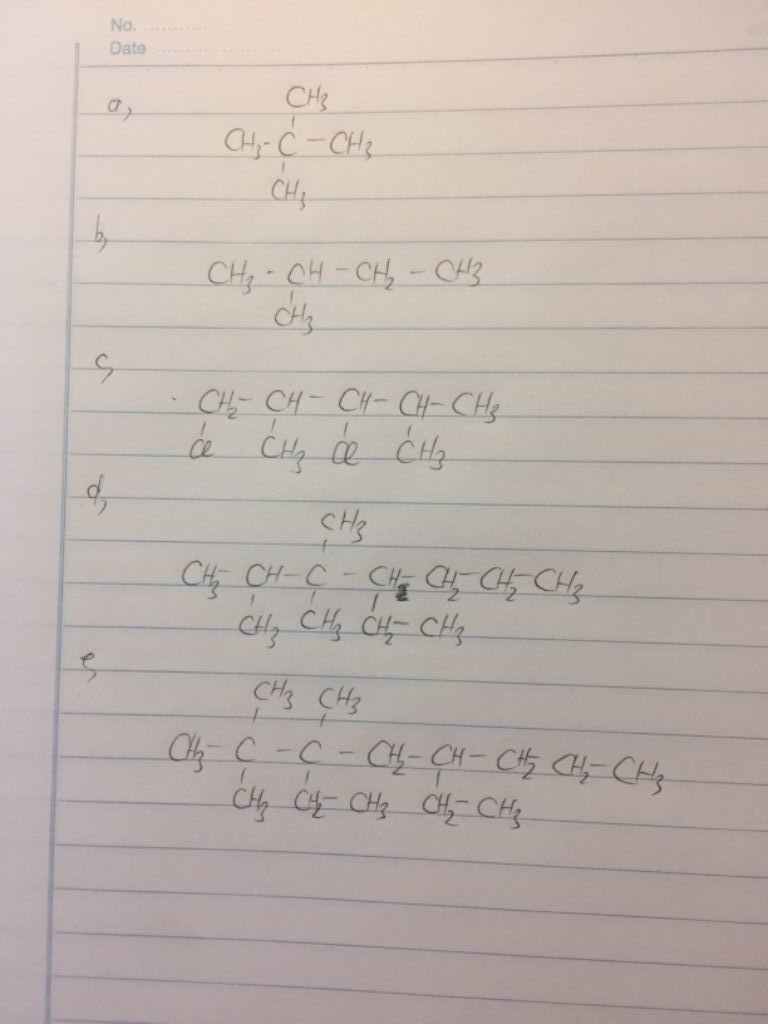 No.
Date
a,
CH3
CH3-C-CH3
CH3
b,
CH3-CH-CH2-CH3
CH3
c,
CH2-CH-CH-CH-CH3
Cl CH3 Cl CH3
d,
CH3
CH3-CH-C-CH-CH2-CH2-CH3
CH3 CH3 CH2-CH3
e,
CH3 CH3
CH3-C-C-CH2-CH-CH2 CH2-CH3
CH3 CH2-CH3 CH2-CH3